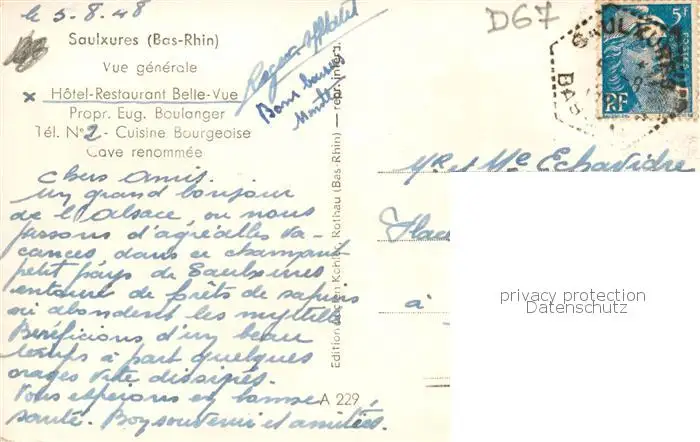 le 5.8.48
D67
Saulxures (Bas-Rhin)
Vue générale
x Hôtel-Restaurant Belle-Vue
Propr. Eug. Boulanger
Tél. N° 2 - Cuisine Bourgeoise
Cave renommée
Bons baisers
Chers Amis.
Un grand bonjour
de l'Alsace, où nous
passons d'agréables va-
cances, dans ce charmant
petit pays de Saulxures
entouré de forêts de sapins
où abondent les myrtilles
Bénéficions d'un beau
temps à part quelques
orages vite dissipés.
Vous espérons en bonne
santé. Bon souvenir et amitiés.
Kohler, Rothau (Bas-Rhin) — repr. interd.
A 229
5F
RF
SAULXURES
Mr et Me Echavidre
à
privacy protection
Datenschutz